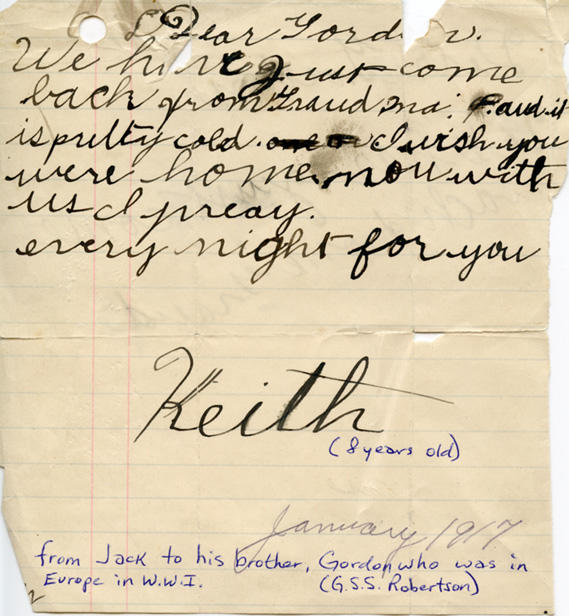 Dear Gordon.
We have just come
back from Graudma. and it
is pretty cold I wish you
were home now with
us I preay.
every night for you
Keith
(8 years old)
January 1917
from Jack to his brother, Gordon who was in
Europe in W.W.I. (G.S.S. Robertson)